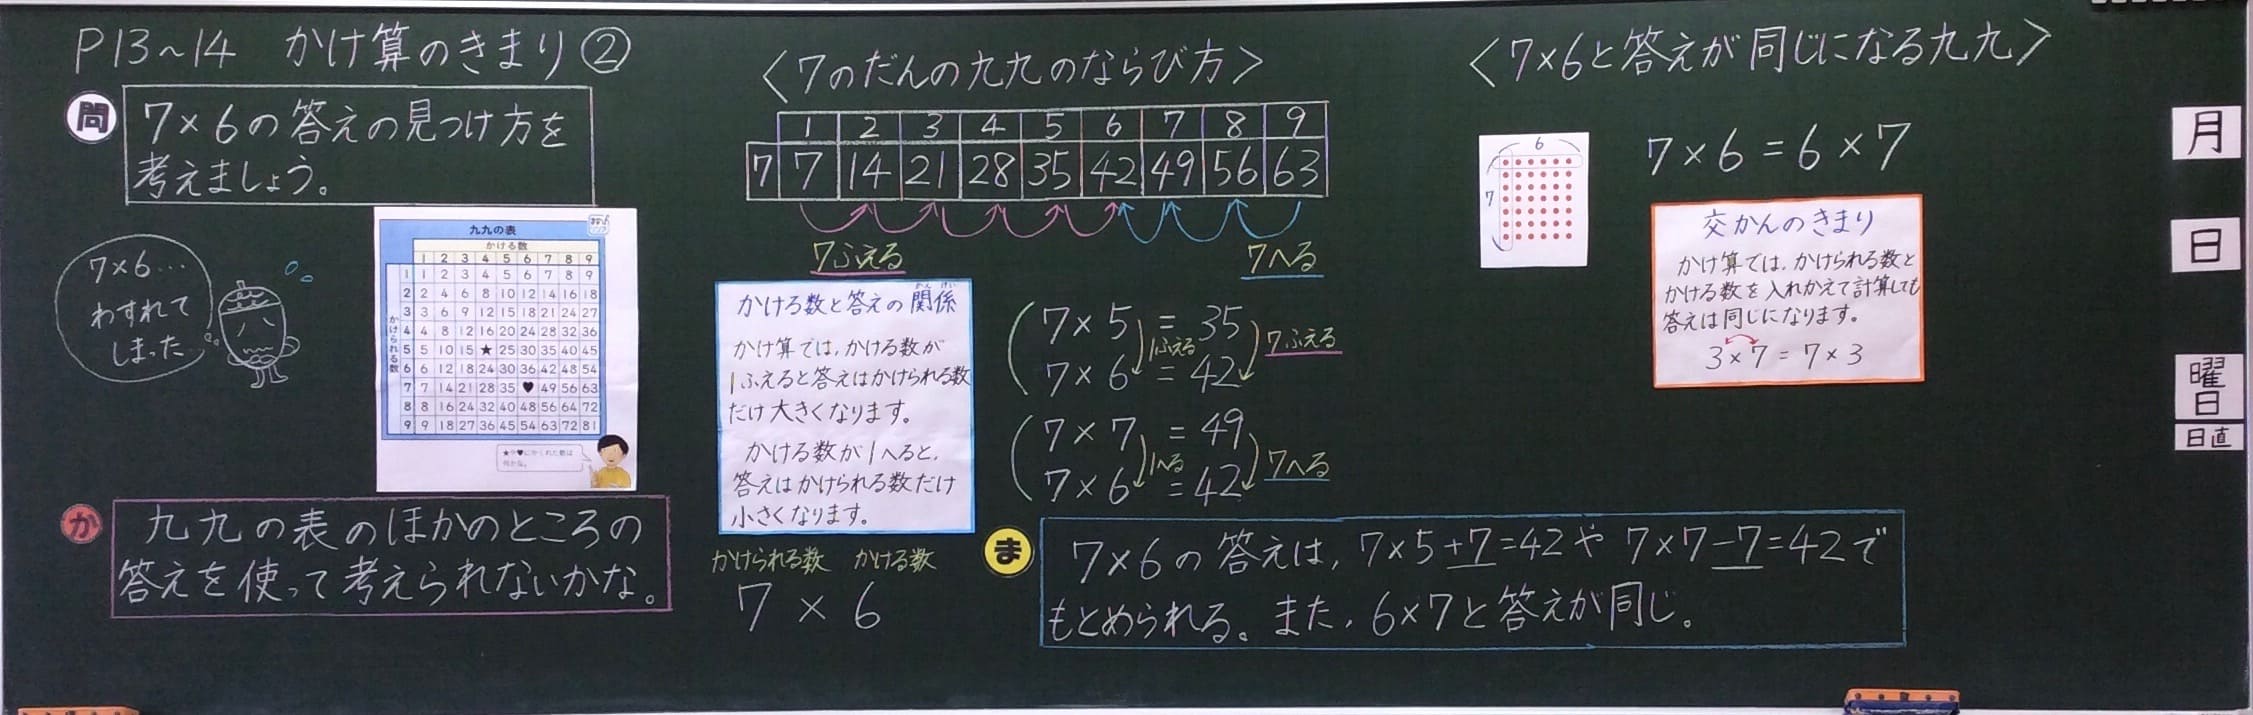 P13~14 かけ算のきまり②
問
7×6の答えの見つけ方を
考えましょう。
7×6…
わすれて
しまった
九九の表
かける数
1 2 3 4 5 6 7 8 9
かけられる数
1 1 2 3 4 5 6 7 8 9
2 2 4 6 8 10 12 14 16 18
3 3 6 9 12 15 18 21 24 27
4 4 8 12 16 20 24 28 32 36
5 5 10 15 ★ 25 30 35 40 45
6 6 12 18 24 30 36 42 48 54
7 7 14 21 28 35 ♥ 49 56 63
8 8 16 24 32 40 48 56 64 72
9 9 18 27 36 45 54 63 72 81
★や♥にかくれた数は
何かな。
か
九九の表のほかのところの
答えを使って考えられないかな。
〈7のだんの九九のならび方〉
1 2 3 4 5 6 7 8 9
7 7 14 21 28 35 42 49 56 63
7ふえる
7へる
かける数と答えの関係
かんけい
かけ算では、かける数が
1ふえると答えはかけられる数
だけ大きくなります。
かける数が1へると、
答えはかけられる数だけ
小さくなります。
かけられる数 かける数
7 × 6
7×5=35
1ふえる 7ふえる
7×6=42
7×7=49
1へる 7へる
7×6=42
〈7×6と答えが同じになる九九〉
6
7
7×6=6×7
交かんのきまり
かけ算では、かけられる数と
かける数を入れかえて計算しても
答えは同じになります。
3×7=7×3
ま
7×6の答えは、7×5+7=42や7×7-7=42で
もとめられる。また、6×7と答えが同じ。
月
日
曜日
日直